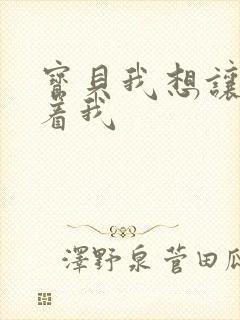 寶貝我想讓
着我
澤野泉菅田瓜